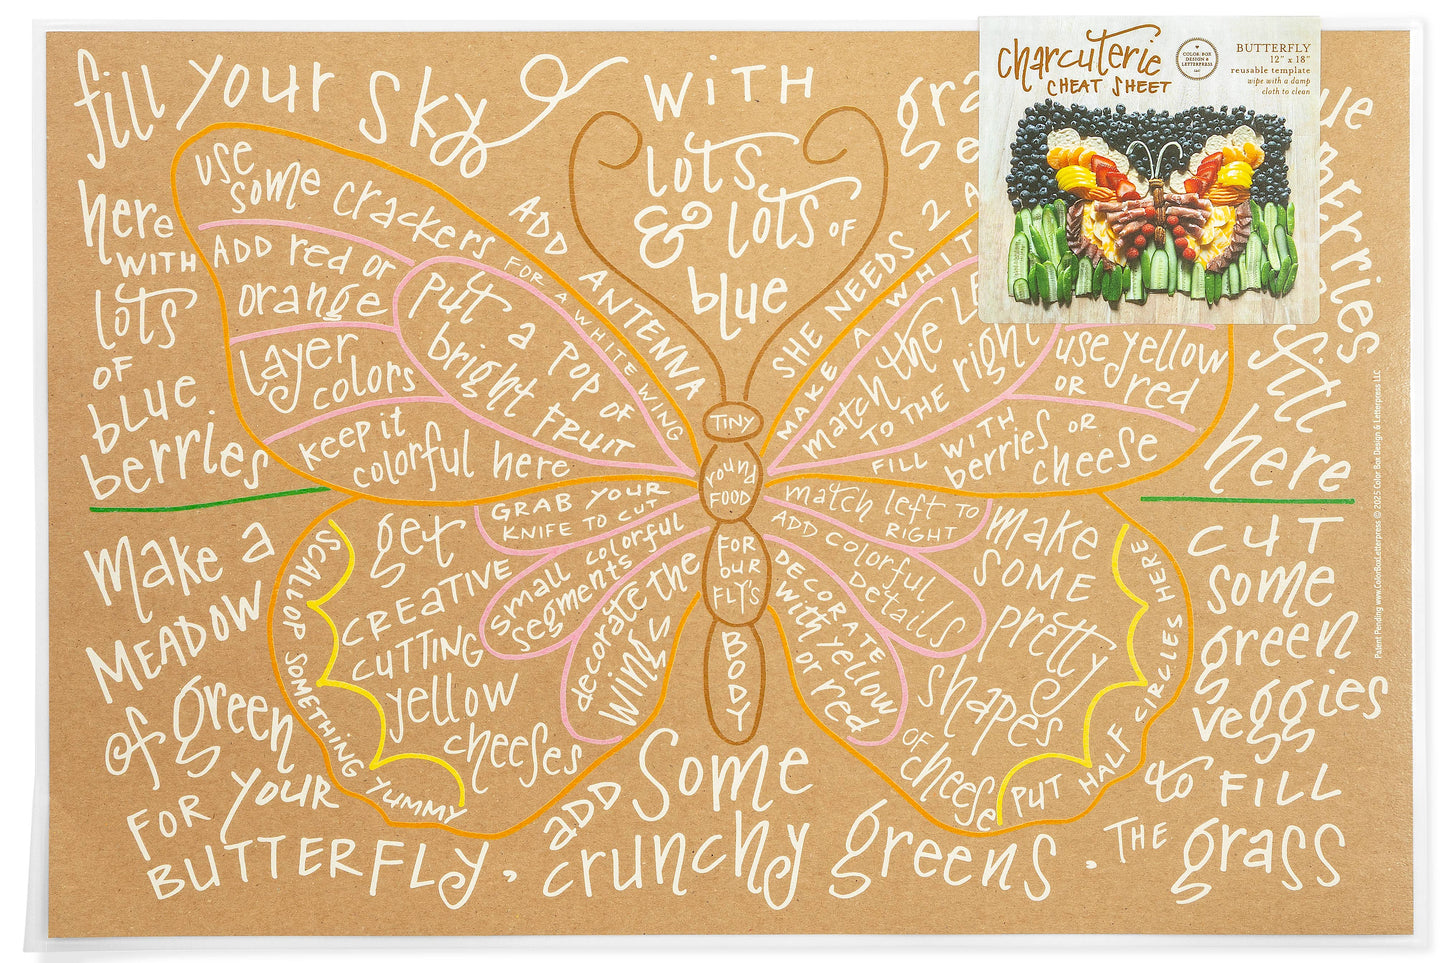 charcuterie
CHEAT SHEET
COLOR BOX
DESIGN &
LETTERPRESS
LLC
BUTTERFLY
12" x 18"
reusable template
wipe with a damp
cloth to clean
fill your sky
here
WITH
lots
OF
blue
berries
WITH
lots
& lots OF
blue
fill
here
use
some crackers
FOR A WHITE WING
ADD ANTENNA
ADD red or
orange
layer
colors
keep it
colorful here
put a POP OF
bright FRUIT
SHE NEEDS 2
MAKE A WHIT
match the LE
TO THE right
use yellow
OR red
FILL WITH
berries OR
cheese
TINY
round
FOOD
FOR
OUR
FLY'S
BODY
GRAB YOUR
KNIFE TO CUT
small colorful
segments
decorate the
wings
get
CREATIVE
CUTTING
yellow
cheeses
SCALLOP SOMETHING YUMMY
match left to
RIGHT
ADD COLORFUL
Details
DECORATE
with yellow
or red
make
SOME
pretty
shapes
OF cheese
PUT HALF CIRCLES HERE
make a
MEADOW
of green
FOR YOUR
BUTTERFLY,
ADD Some
crunchy greens.
CUT
some
green
veggies
to FILL
THE grass
Patent Pending www.ColorBoxLetterpress © 2025 Color Box Design & Letterpress LLC